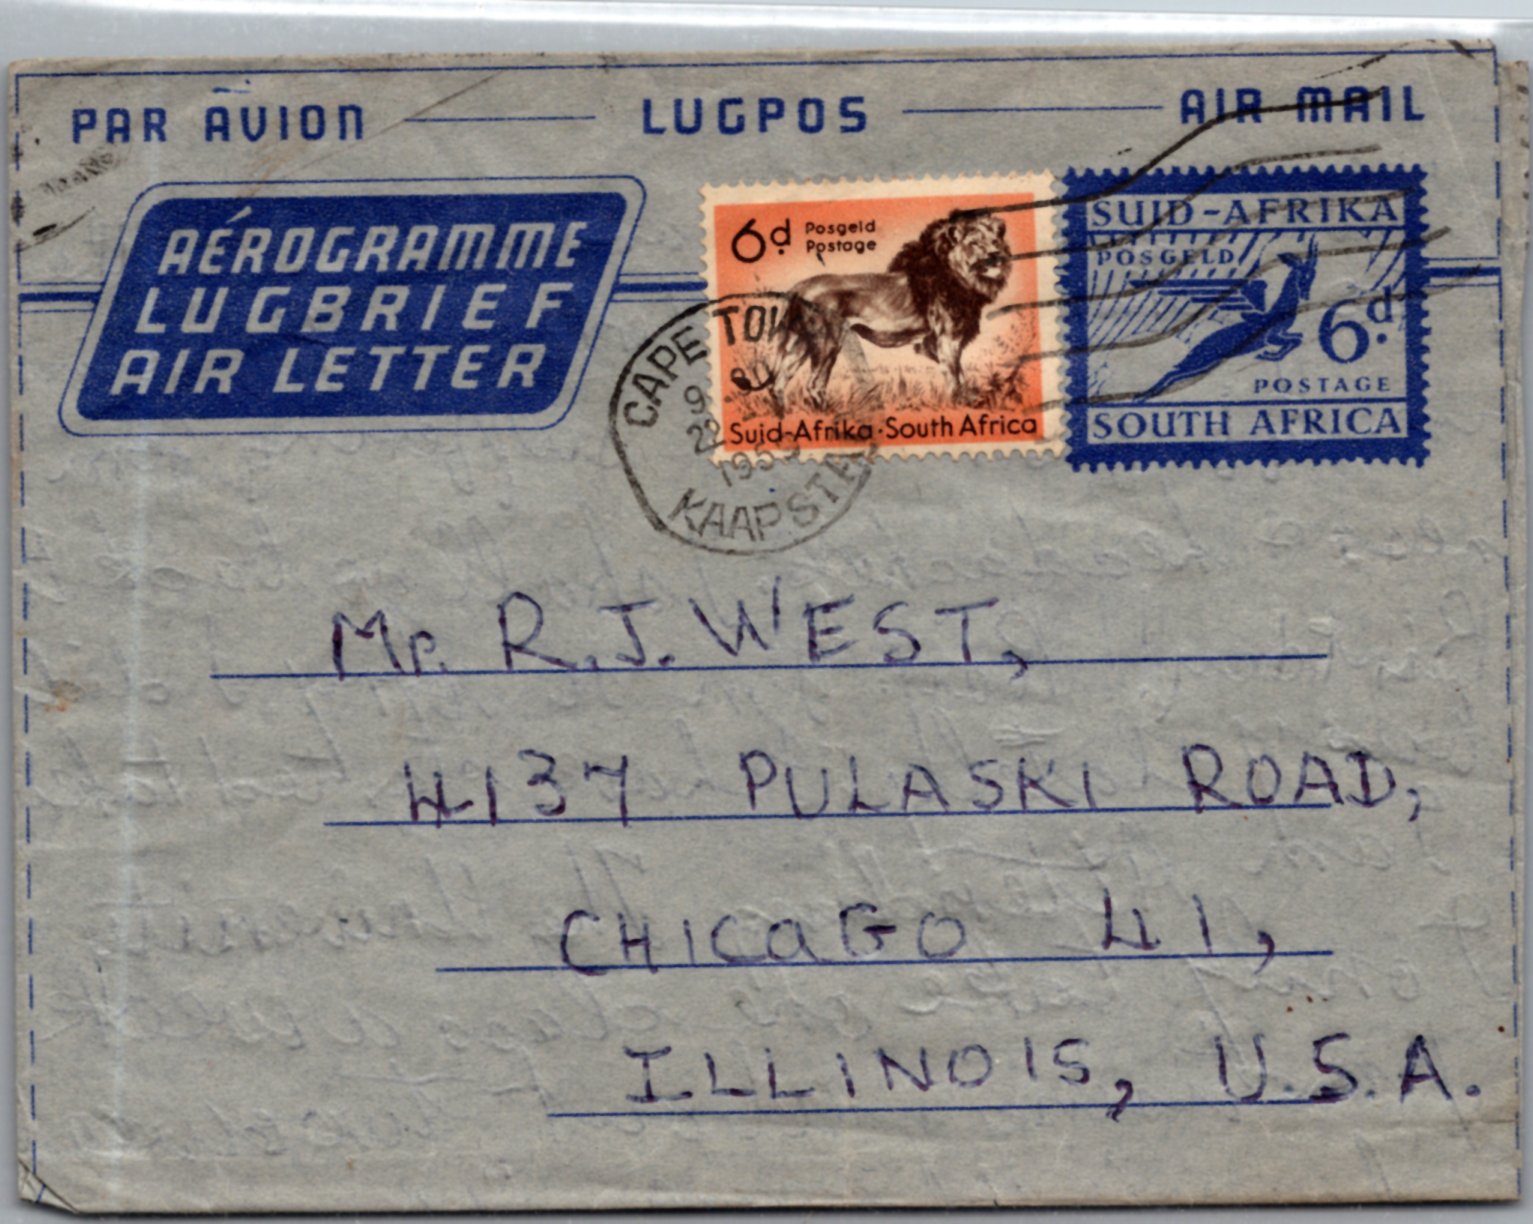 PAR AVION LUGPOS AIR MAIL
AÉROGRAMME
LUGBRIEF
AIR LETTER
6d Posgeld
Postage
Suid-Afrika·South Africa
SUID-AFRIKA
POSGELD
6d.
POSTAGE
SOUTH AFRICA
CAPE TOW
KAAPSTA
Mr. R. J. WEST,
4137 PULASKI ROAD,
CHICAGO 41,
ILLINOIS, U.S.A.